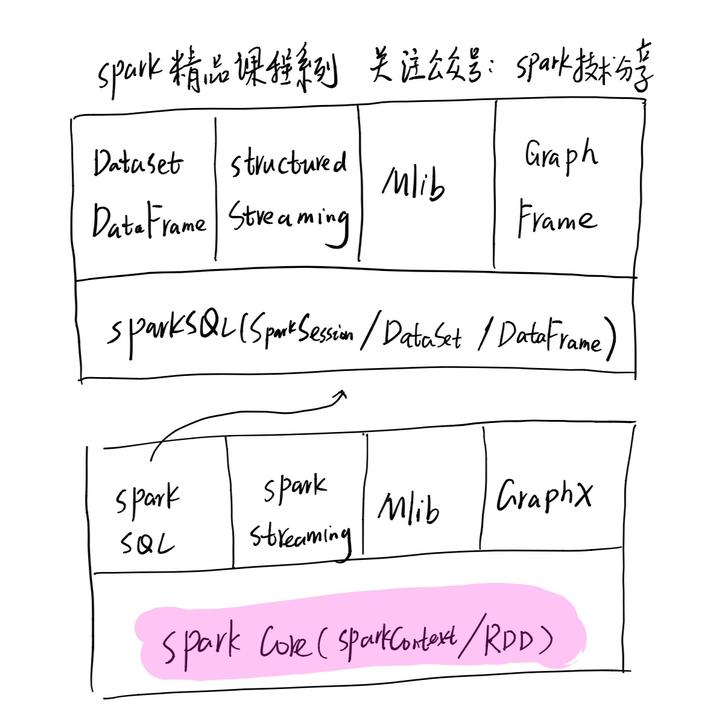 spark精品课程系列 关注公众号: spark技术分享
Dataset
DataFrame
structured
Streaming
Mlib
Graph
Frame
SparkSQL(SparkSession/DataSet/DataFrame)
spark
SQL
spark
streaming
Mlib
GraphX
spark Core(sparkContext/RDD)